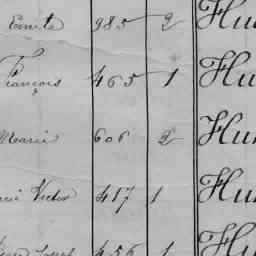 Emile 985 2 Hu
François 465 1 Hu
Marie 606 2 Hu
Victor 417 1 Hu
456 1 Hu